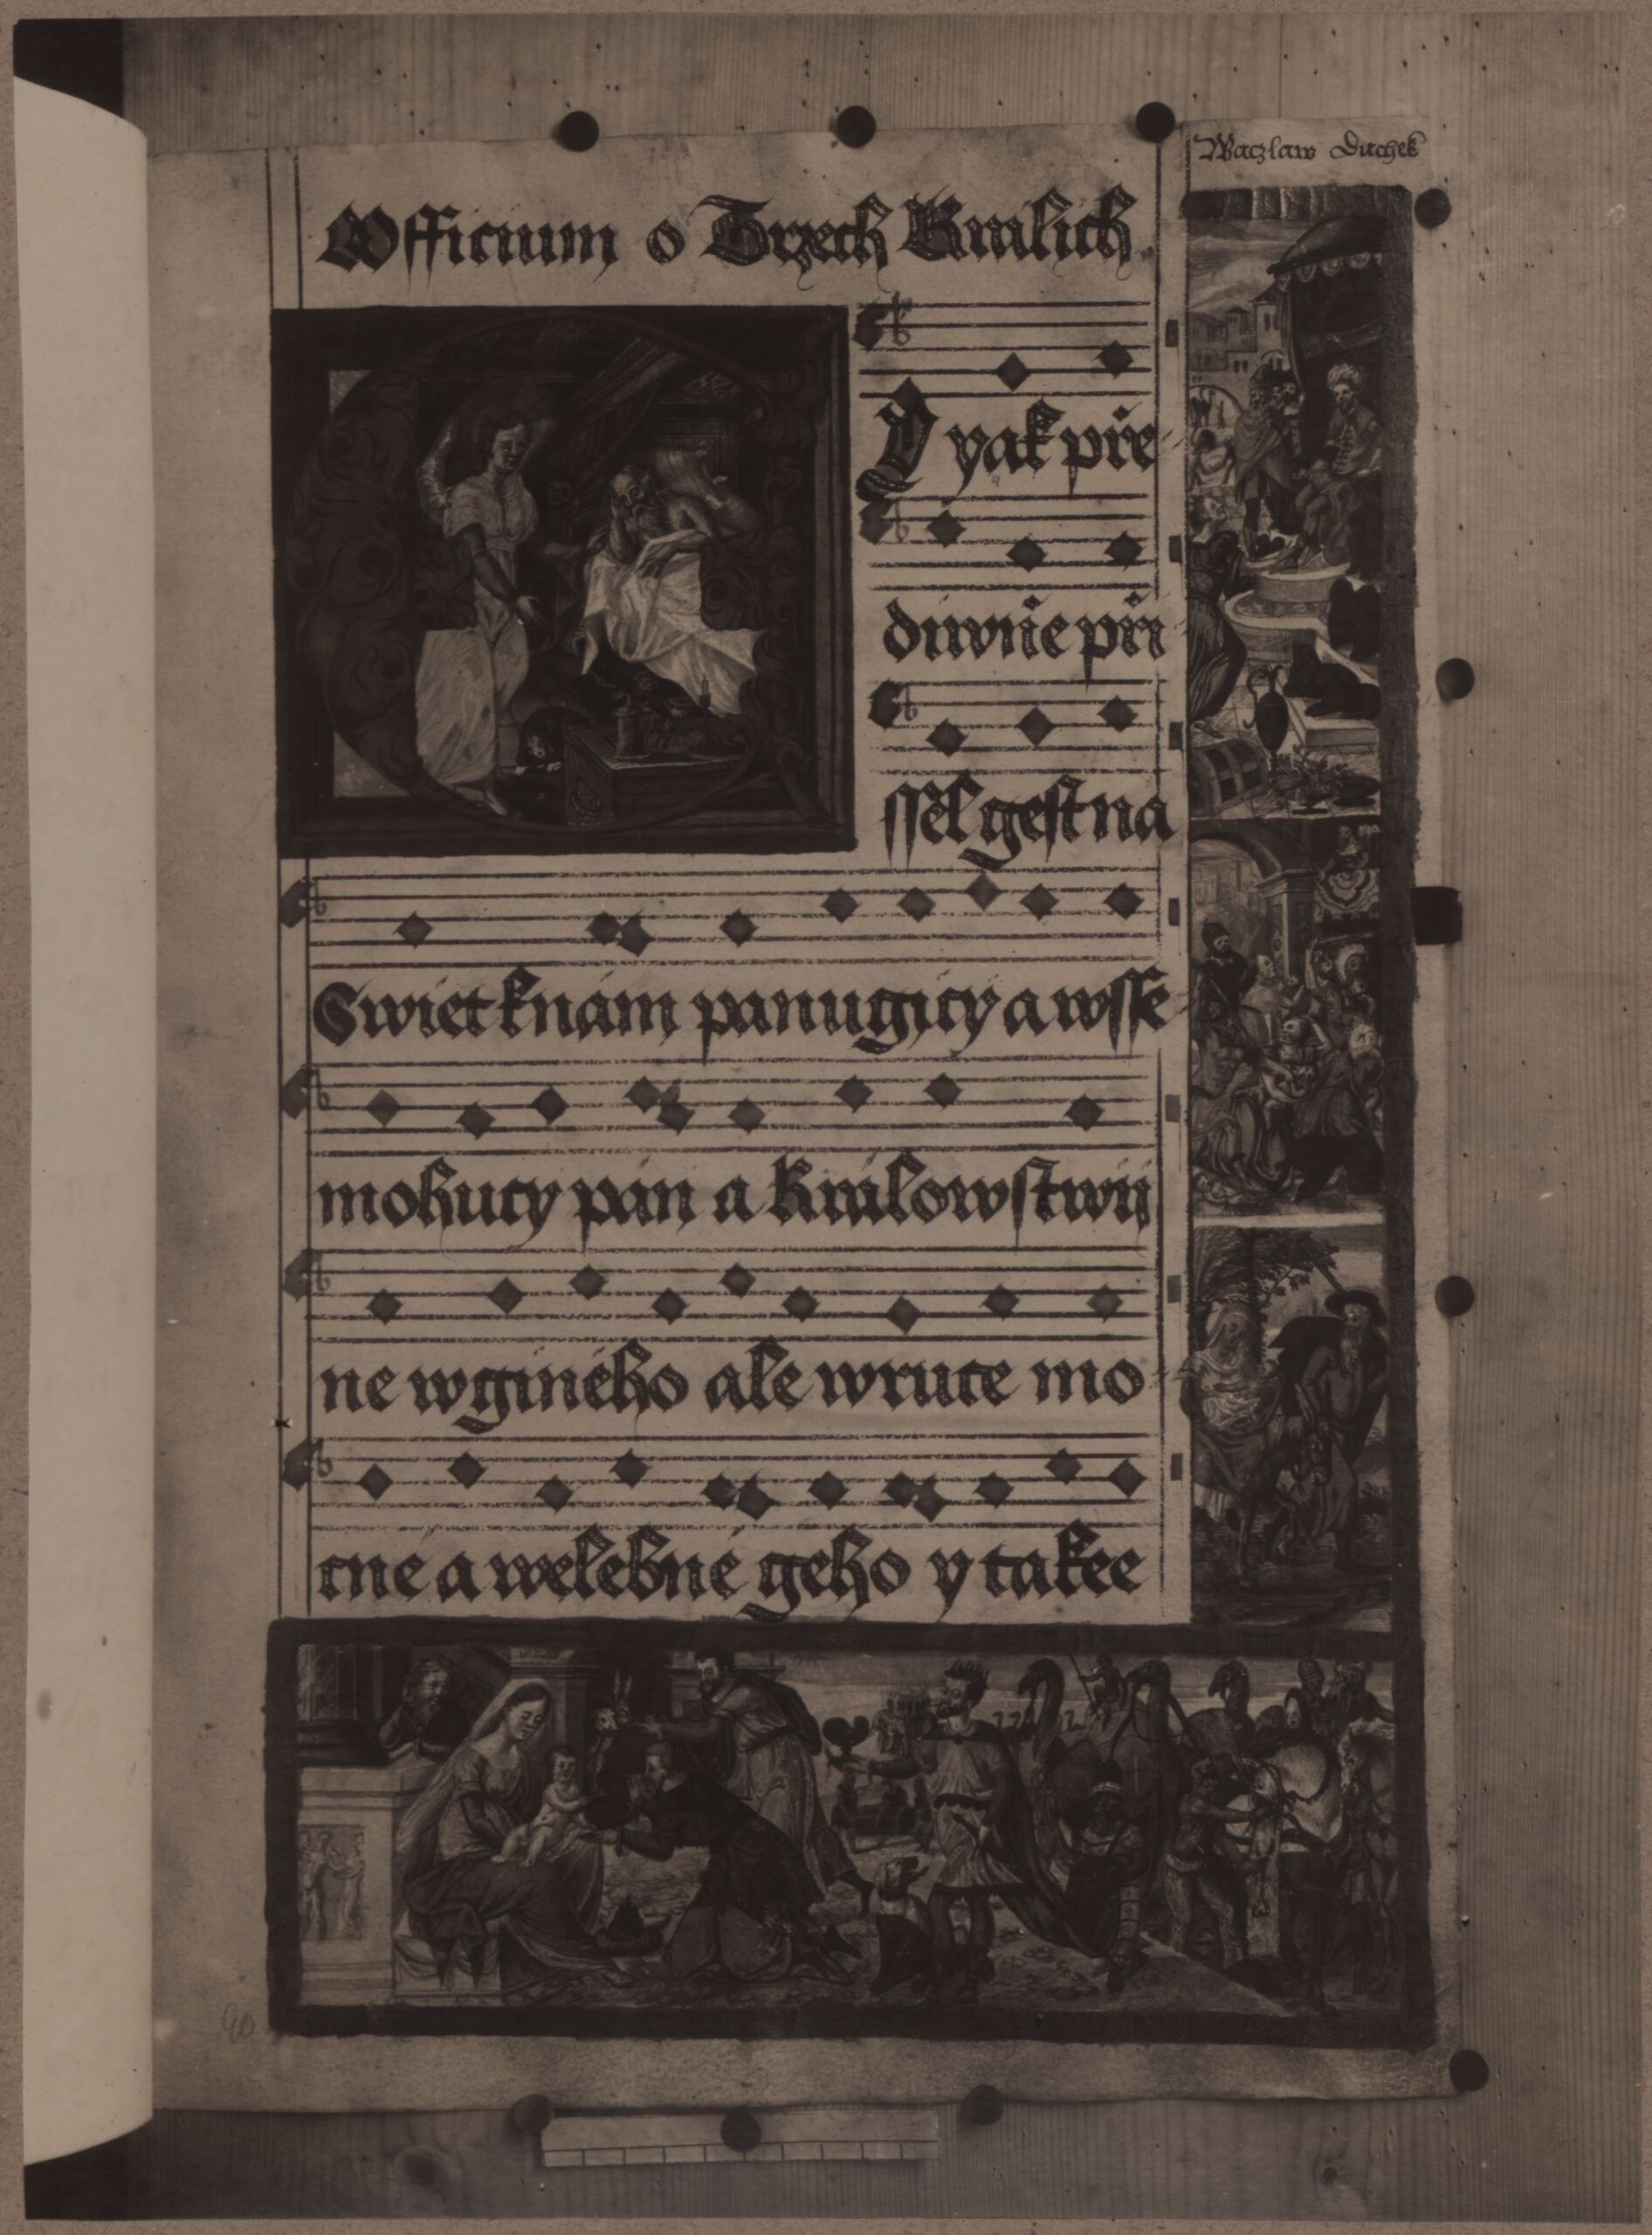 Waczlaw Duchek
Officium o Trzech Kralich
O yak pře-
diwnie při-
ssel gest na
Swiet k nám panugicy a wsse-
mohucy pán a Kralowstwij
ne wgineho ale wruce mo-
cné a welebné geho y takee
90